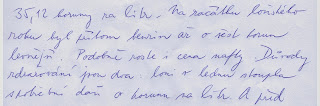 35,12 koruny za litr. Na začátku loňského
roku byl přitom benzin až o šest korun
levnější. Podobně roste i cena nafty. Důvody
zdražování jsou dva. Loni v lednu stoupla
spotřební daň o korunu na litr. A před